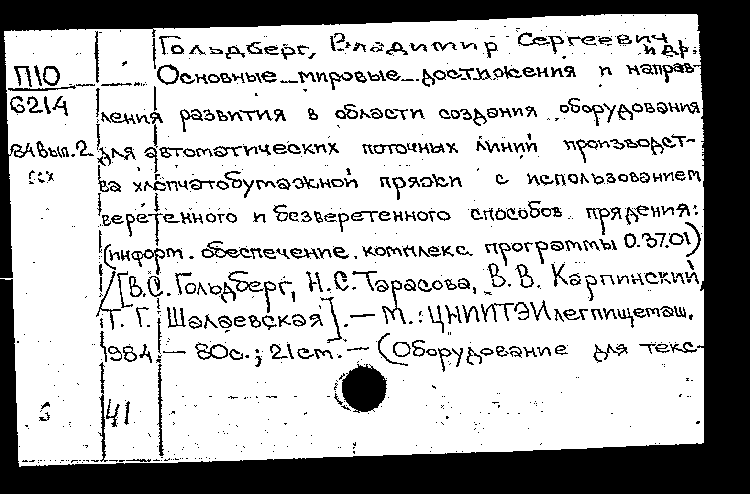 Гольдберг, Владимир Сергеевич и др.
П10 Основные мировые достижения и направ-
6214 ления развития в области создания оборудования
84 вып. 2 для автоматических поточных линий производст-
ва хлопчатобумажной пряжи с использованием
веретенного и безверетенного способов прядения:
(информ. обеспечение. комплекс. программы 0.37.01)
/[В.С. Гольдберг, Н.С. Тарасова, В.В. Карпинский,
Т. Г. Шалаевская]. — М.: ЦНИИТЭИлегпищемаш,
1984 — 80с.; 21см. — (Оборудование для текс-
41